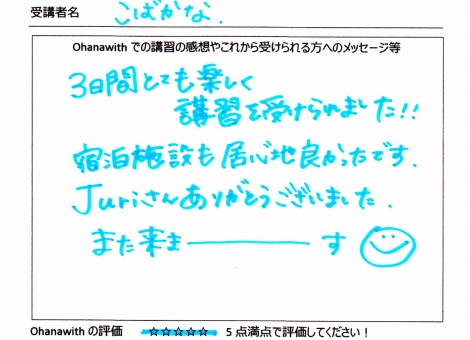 受講者名 こばかな.
Ohanawith での講習の感想やこれから受けられる方へのメッセージ等
3日間とても楽しく
講習を受けられました!!
宿泊施設も居心地良かったです.
Juriさんありがとうございました.
また来ま――――す
Ohanawith の評価 ☆☆☆☆☆ 5 点満点で評価してください!